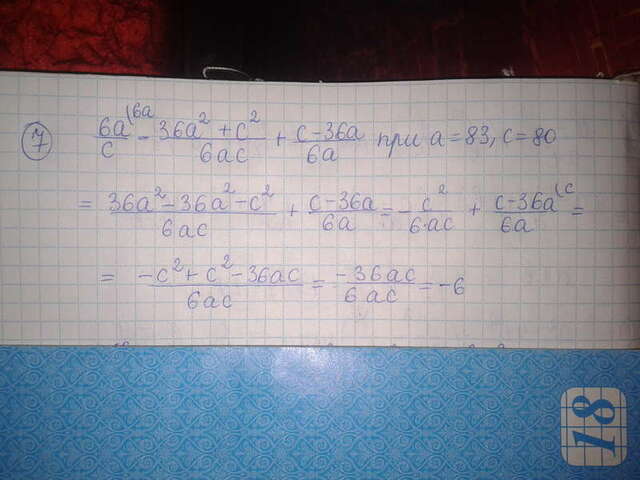 7 6a/c (6a - 36a² + c²/6ac + c-36a/6a при a=83, c=80
= 36a²-36a²-c²/6ac + c-36a/6a = -c²/6·ac + c-36a/6a (c =
= -c²+c²-36ac/6ac = -36ac/6ac = -6
18